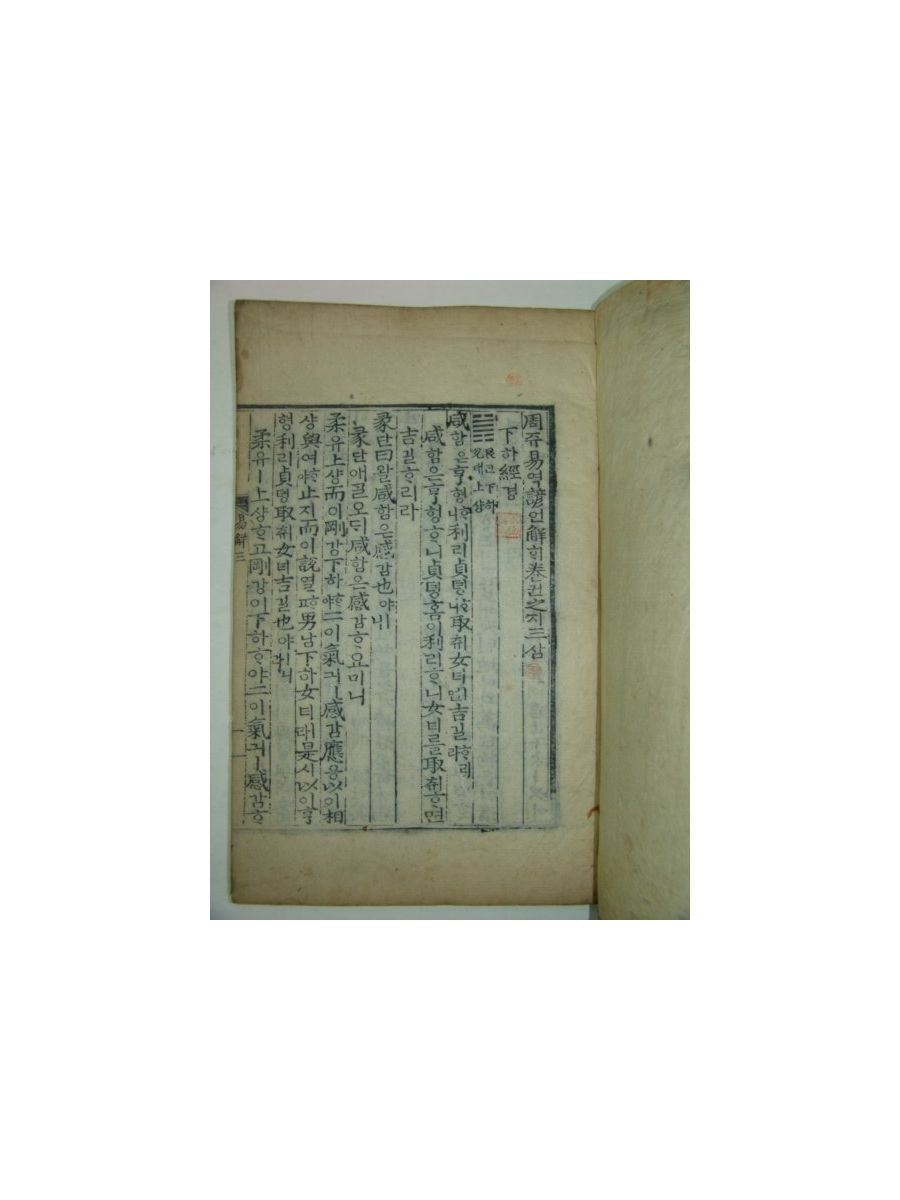 周쥬易역諺언解ᄒᆡ卷권之지三삼
下하經경
艮간下하
兌태上샹
咸함은亨형ᄒᆞ니利리貞뎡ᄒᆞ니取츄女녀ㅣ면吉길ᄒᆞ리라
咸함은亨형ᄒᆞ니貞뎡홈이利리ᄒᆞ니女녀ᄅᆞᆯ取츄ᄒᆞ면
吉길ᄒᆞ리라
彖단曰왈咸함은感감也야ㅣ니
彖단애ᄀᆞᆯ오ᄃᆡ咸함은感감ᄒᆞ요미니
柔유上샹而이剛강下하ᄒᆞ야二이氣긔ㅣ感감應응以이相
샹與여ᄒᆞ야止지而이說열ᄒᆞ고男남下하女녀ㅣ라是시以이亨
형利리貞뎡取츄女녀吉길也야ㅣ니라
柔유ㅣ上샹ᄒᆞ고剛강이下하ᄒᆞ야二이氣긔ㅣ感감ᄒᆞ
易解三